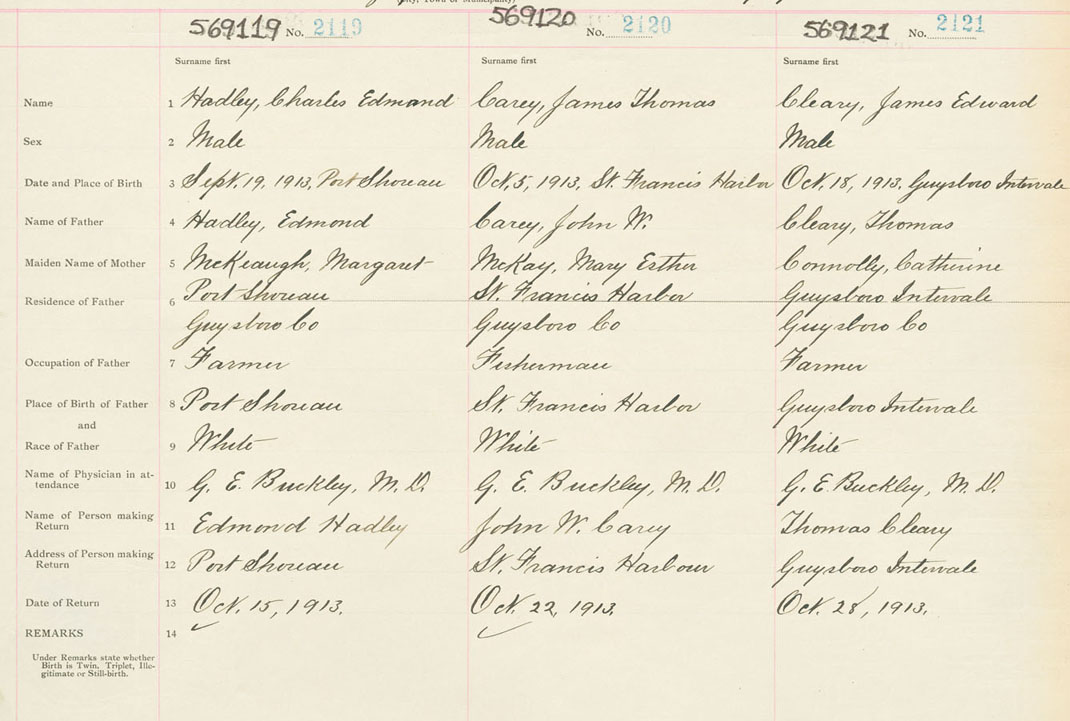 569119 No. 2119 569120 No. 2120 569121 No. 2121
Surname first Surname first Surname first
Name 1 Hadley, Charles Edmond Carey, James Thomas Cleary, James Edward
Sex 2 Male Male Male
Date and Place of Birth 3 Sept. 19, 1913, Port Shoreau Oct. 5, 1913. St. Francis Harbor Oct. 18, 1913. Guysboro Intervale
Name of Father 4 Hadley, Edmond Carey, John W. Cleary, Thomas
Maiden Name of Mother 5 McKeaugh, Margaret McKay, Mary Esther Connolly, Catherine
Residence of Father 6 Port Shoreau St. Francis Harbor Guysboro Intervale
Guysboro Co Guysboro Co Guysboro Co
Occupation of Father 7 Farmer Fisherman Farmer
Place of Birth of Father 8 Port Shoreau St. Francis Harbor Guysboro Intervale
and
Race of Father 9 White White White
Name of Physician in at-
tendance 10 G. E. Buckley, M. D. G. E. Buckley, M. D. G. E. Buckley, M. D.
Name of Person making
Return 11 Edmond Hadley John W. Carey Thomas Cleary
Address of Person making
Return 12 Port Shoreau St. Francis Harbour Guysboro Intervale
Date of Return 13 Oct. 15, 1913. Oct. 22, 1913. Oct. 28, 1913.
REMARKS 14
Under Remarks state whether
Birth is Twin, Triplet, Ille-
gitimate or Still-birth.